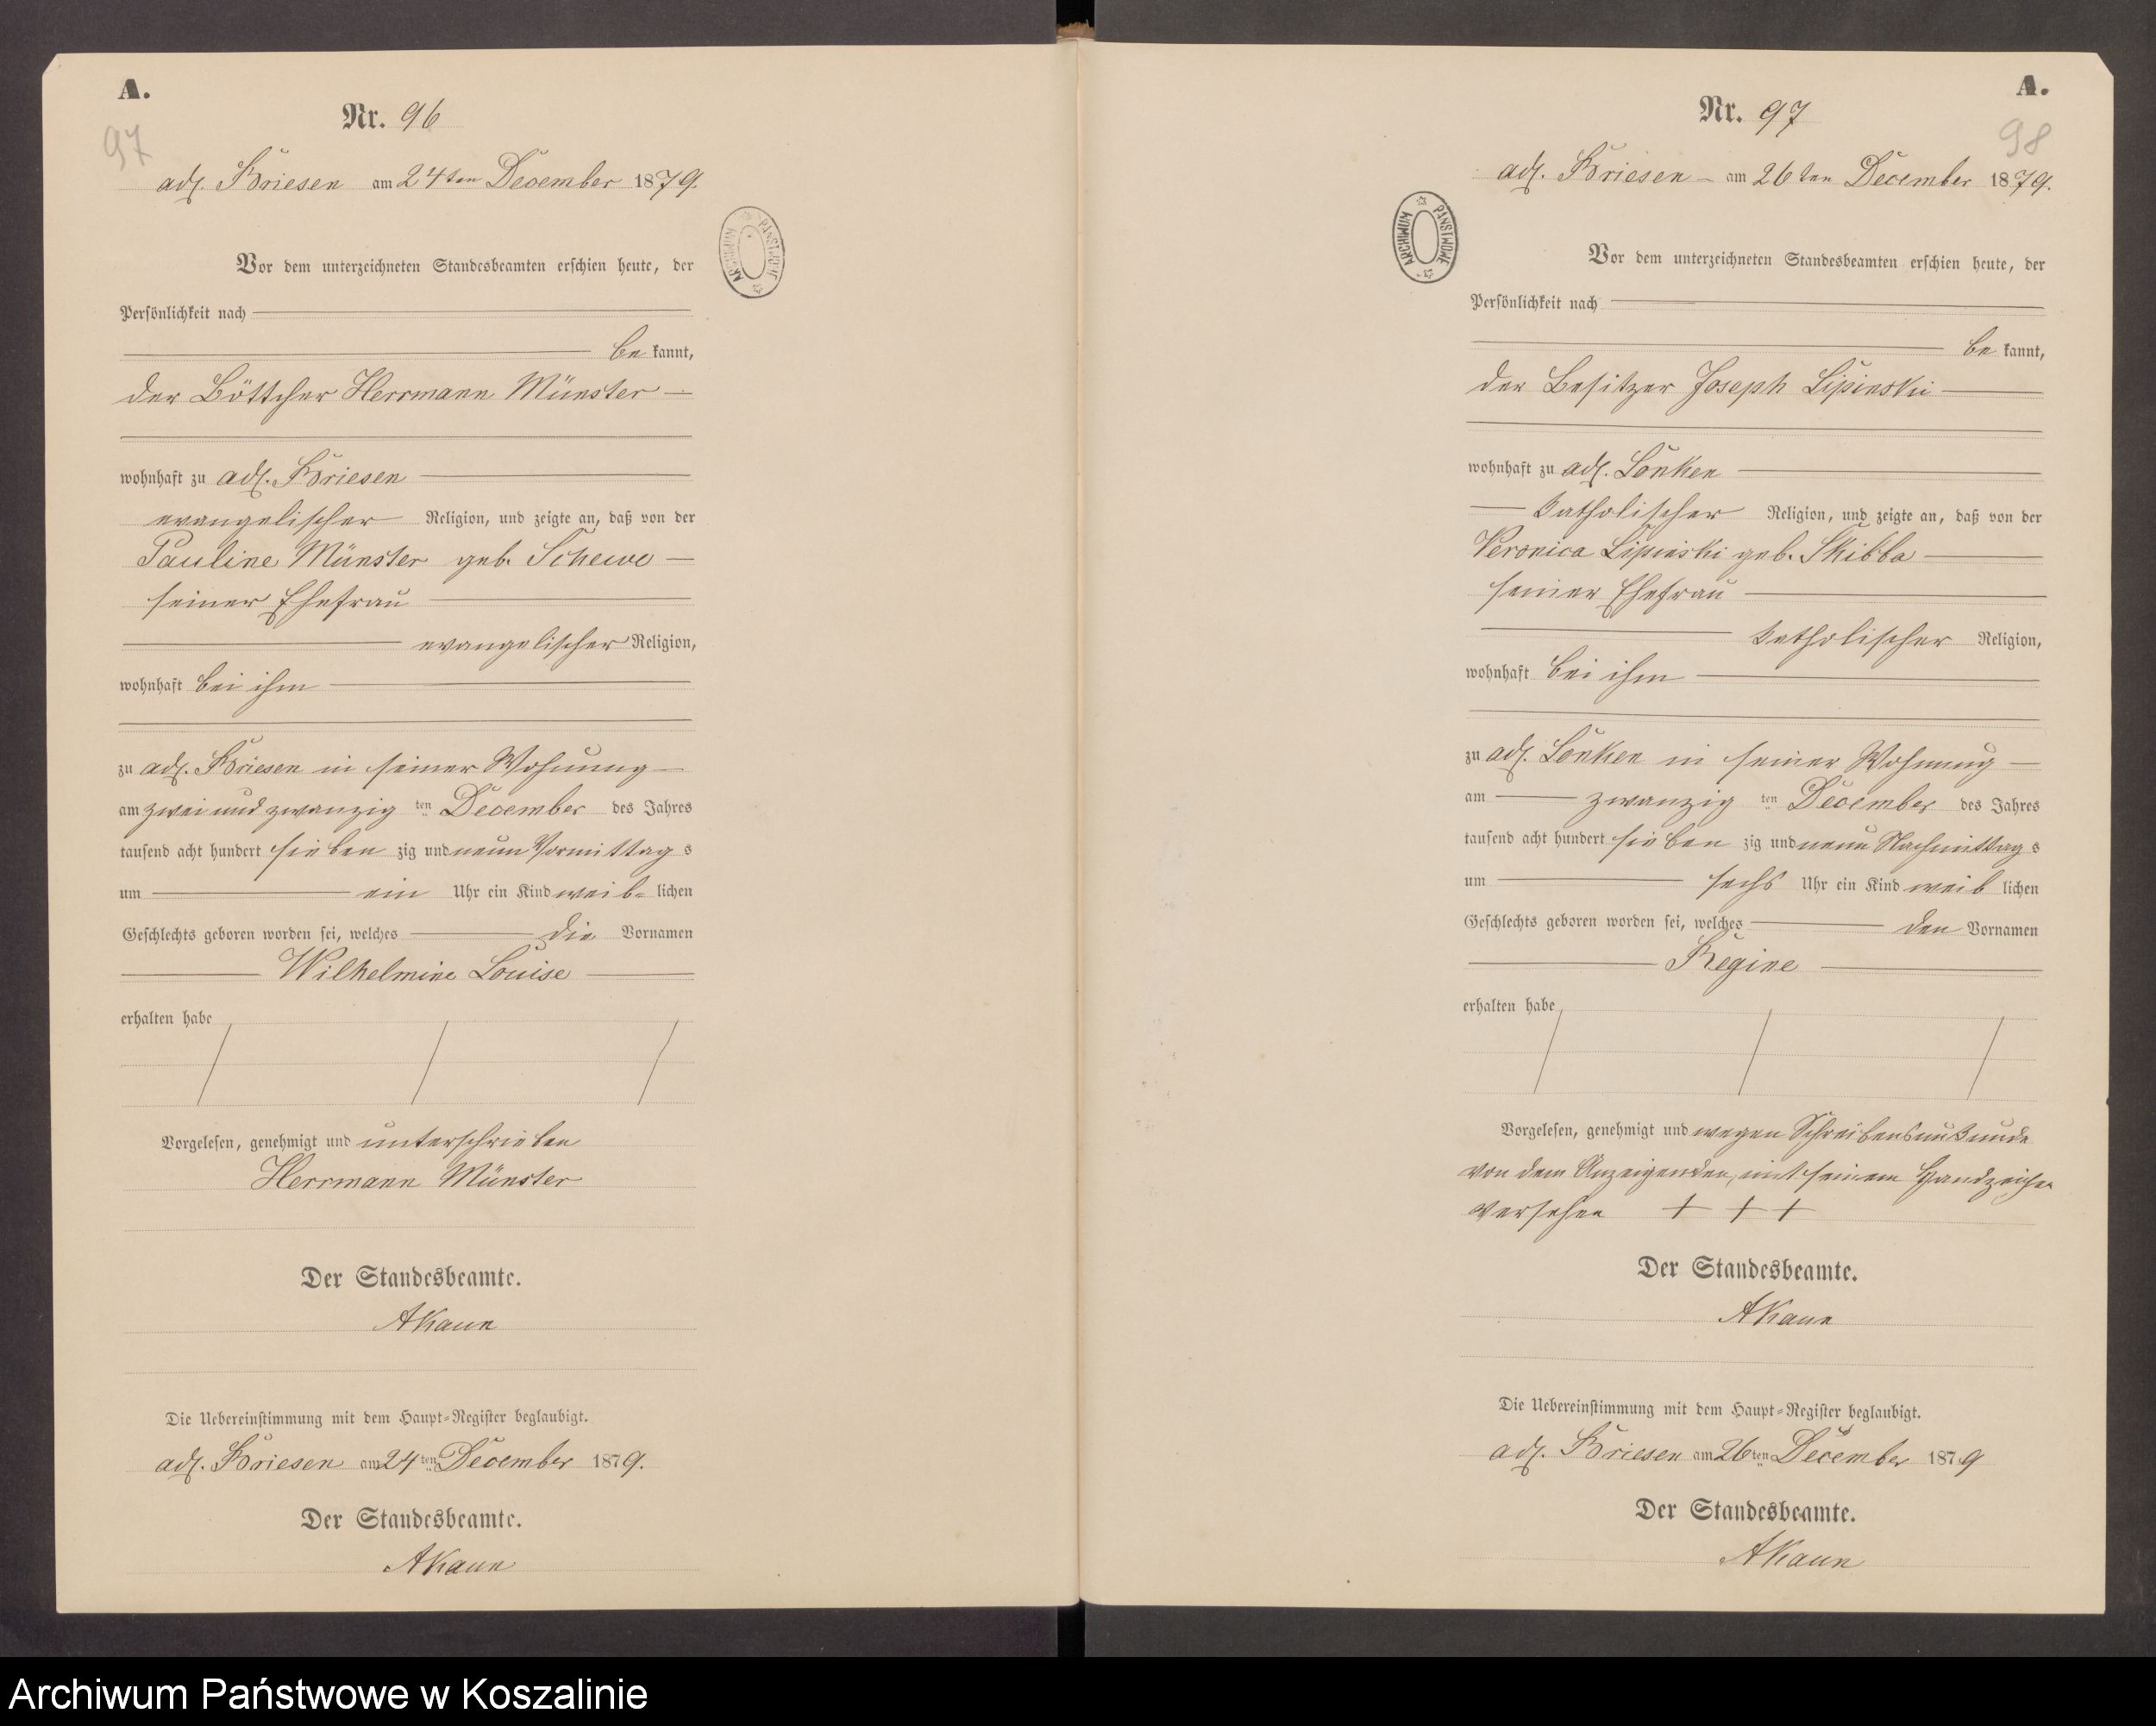 A.
Nr. 96
97
adl. Briesen am 24ten December 1879.
ARCHIWUM PAŃSTWOWE
Vor dem unterzeichneten Standesbeamten erschien heute, der
Persönlichkeit nach
be kannt,
der Böttcher Herrmann Münster
wohnhaft zu adl. Briesen
evangelischer Religion, und zeigte an, daß von der
Pauline Münster geb. Schewe
seiner Ehefrau
evangelischer Religion,
wohnhaft bei ihm
zu adl. Briesen in seiner Wohnung
am zwei und zwanzig ten December des Jahres
tausend acht hundert sieben zig und neun Vormittag s
um ein Uhr ein Kind weib= lichen
Geschlechts geboren worden sei, welches die Vornamen
Wilhelmine Louise
erhalten habe
Vorgelesen, genehmigt und unterschrieben
Herrmann Münster
Der Standesbeamte.
AKaun
Die Uebereinstimmung mit dem Haupt=Register beglaubigt.
adl. Briesen am 24ten December 1879.
Der Standesbeamte.
AKaun
A.
Nr. 97
98
adl. Briesen am 26ten December 1879.
ARCHIWUM PAŃSTWOWE
Vor dem unterzeichneten Standesbeamten erschien heute, der
Persönlichkeit nach
be kannt,
der Besitzer Joseph Lipinski
wohnhaft zu adl. Lonken
katholischer Religion, und zeigte an, daß von der
Veronica Lipinski geb. Skibba
seiner Ehefrau
katholischer Religion,
wohnhaft bei ihm
zu adl. Lonken in seiner Wohnung
am zwanzig ten December des Jahres
tausend acht hundert sieben zig und neun Nachmittag s
um sechs Uhr ein Kind weib lichen
Geschlechts geboren worden sei, welches den Vornamen
Regine
erhalten habe
Vorgelesen, genehmigt und wegen Schreibensunkunde
von dem Anzeigenden, mit seinem Handzeichen
versehen + + +
Der Standesbeamte.
AKaun
Die Uebereinstimmung mit dem Haupt=Register beglaubigt.
adl. Briesen am 26ten December 1879
Der Standesbeamte.
AKaun
Archiwum Państwowe w Koszalinie